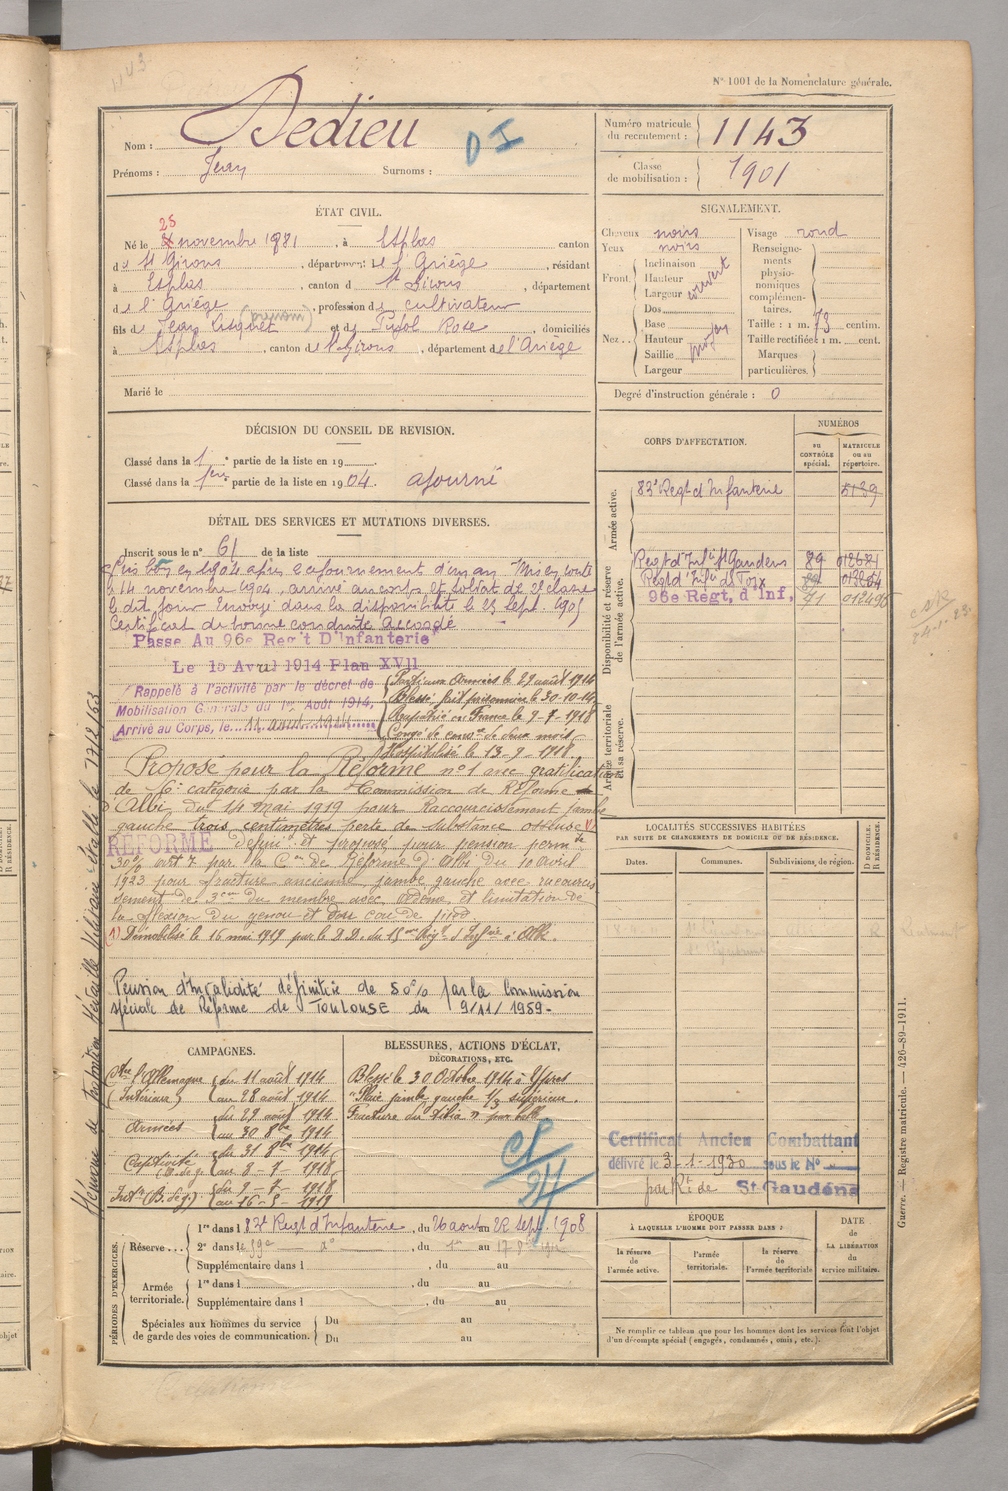 1143
N° 1001 de la Nomenclature générale.
Nom : Dedieu
Prénoms : Jean Surnoms :
Numéro matricule du recrutement : 1143
Classe de mobilisation : 1901
ÉTAT CIVIL.
25
Né le novembre 1881, à Esplas canton
de St Girons, département de l'Ariège, résidant
à Esplas, canton de St Girons, département
de l'Ariège, profession de cultivateur
fils de Jean (prénom) et de Pujol Rose, domiciliés
à Esplas, canton de St Girons, département de l'Ariège
Marié le
SIGNALEMENT.
Cheveux noirs
Yeux noirs
Front Inclinaison
Hauteur
Largeur
couvert
Nez Dos
Base
Hauteur
Saillie
Largeur
moyen
Visage rond
Renseignements physionomiques complémentaires.
Taille : 1 m. 73 centim.
Taille rectifiée : 1 m. cent.
Marques particulières.
Degré d'instruction générale : 0
DÉCISION DU CONSEIL DE REVISION.
Classé dans la 1 partie de la liste en 19
Classé dans la 1ère partie de la liste en 1904. ajourné
DÉTAIL DES SERVICES ET MUTATIONS DIVERSES.
Inscrit sous le n° 61 de la liste
Pris bon en 1904 après ajournement d'un an. Mis en route
le 14 novembre 1904, arrivé au corps et soldat de 2e classe
le dit jour. Envoyé dans la disponibilité le 23 Sept. 1905
Certificat de bonne conduite accordé
Passé Au 96e Reg't D'Infanterie
Le 15 Avril 1914 Plan XVII
Rappelé à l'activité par le décret de
Mobilisation Générale du 1er Août 1914,
Arrivé au Corps, le 11 août 1914
Parti aux Armées le 29 août 1914
Blessé fait prisonnier le 30-10-14
Rapatrié en France le 9-7-1918
Congé de conv.ce de deux mois
Hospitalisé le 13-9-1918
Proposé pour la Réforme n°1 avec gratification
de 6e catégorie par la Commission de Réforme
d'Albi du 14 mai 1919 pour Raccourcissement jambe
gauche trois centimètres perte de substance osseuse
RÉFORMÉ définit et proposé pour pension perm te
30% par la Con de Réforme d'Albi du 10 avril
1923 pour fracture ancienne jambe gauche avec raccourcis
sement de 3cm du membre avec oedème et limitation de
la flexion du genou et du cou de pied
(1) Démobilisé le 16 mai 1919 par le D.D. du 15me Régt d'Infrie à Albi.
Pension d'invalidité définitive de 50% par la commission
spéciale de Réforme de TOULOUSE du 9/11/1959-
CORPS D'AFFECTATION.
NUMÉROS
AU CONTRÔLE spécial.
MATRICULE ou au répertoire.
Armée active.
83e Régt d'Infanterie 5189
Disponibilité et réserve de l'armée active.
Régt d'Infie St Gaudens 89
Régt d'Infie de Foix
96e Régt, d'Inf,
Armée territoriale et sa réserve.
LOCALITÉS SUCCESSIVES HABITÉES
PAR SUITE DE CHANGEMENTS DE DOMICILE OU DE RÉSIDENCE.
Dates. Communes. Subdivisions de région.
D DOMICILE.
R RÉSIDENCE.
CAMPAGNES.
Ctre l'Allemagne du 11 août 1914
(Intérieur) au 28 août 1914
Armées du 29 août 1914
au 30 8bre 1914
Captivité du 31 8bre 1914
au 8-7-1918
du 9-7-1918
au 16-5-1919
BLESSURES, ACTIONS D'ÉCLAT, DÉCORATIONS, ETC.
Blessé le 30 Octobre 1914 à Ypres
"Plaie jambe gauche 1/3 supérieur.
Fracture du tibia" par balle
Certificat Ancien Combattant
délivré le 3-1-1930 sous le No
par R.t de St Gaudens
PÉRIODES D'EXERCICES.
Réserve... 1re dans le 83e Régt d'Infanterie, du 26 août au 22 Sept. 1908
2e dans le 59e do, du 1er au 17
Supplémentaire dans l , du au
Armée territoriale. 1re dans l , du au
Supplémentaire dans l , du au
Spéciales aux hommes du service de garde des voies de communication. Du au
Du au
ÉPOQUE
À LAQUELLE L'HOMME DOIT PASSER DANS :
la réserve de l'armée active.
l'armée territoriale.
la réserve de l'armée territoriale
DATE de LA LIBÉRATION du service militaire.
Ne remplir ce tableau que pour les hommes dont les services font l'objet
d'un décompte spécial (engagés, condamnés, omis, etc.).
Guerre. — Registre matricule. — 426-89-1911.